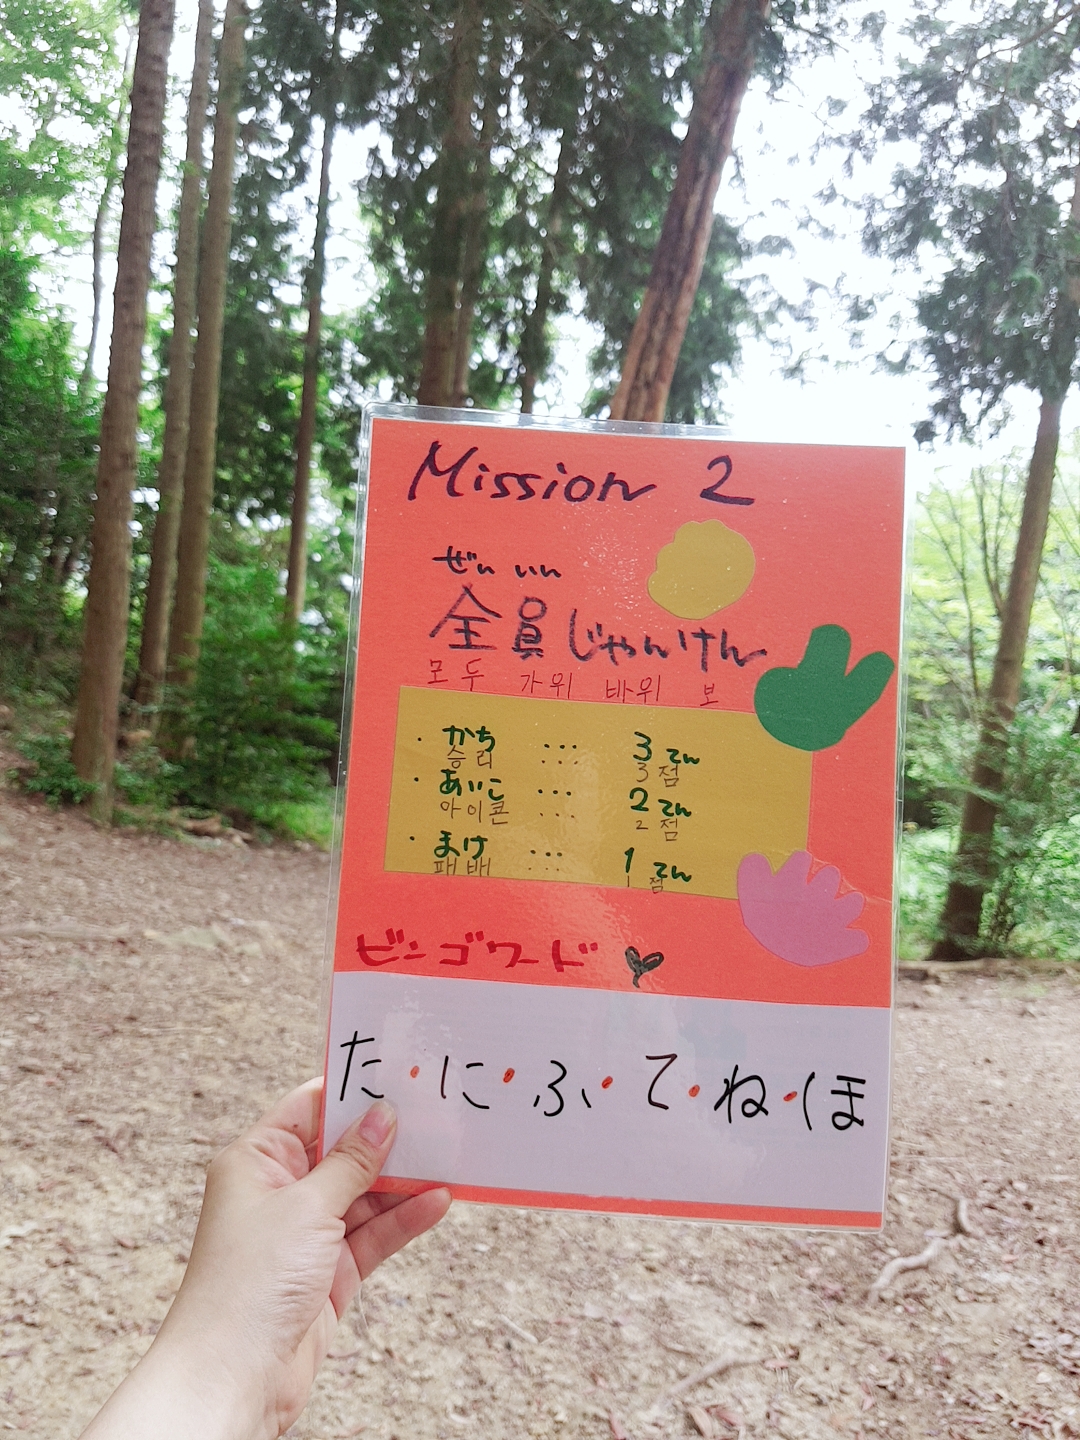 Mission 2
ぜんいん
全員じゃんけん
모두 가위 바위 보
・かち ... 3てん
승리 ... 3점
・あいこ ... 2てん
아이콘 ... 2점
・まけ ... 1てん
패배 ... 1점
ビンゴワード
た・に・ふ・て・ね・ほ